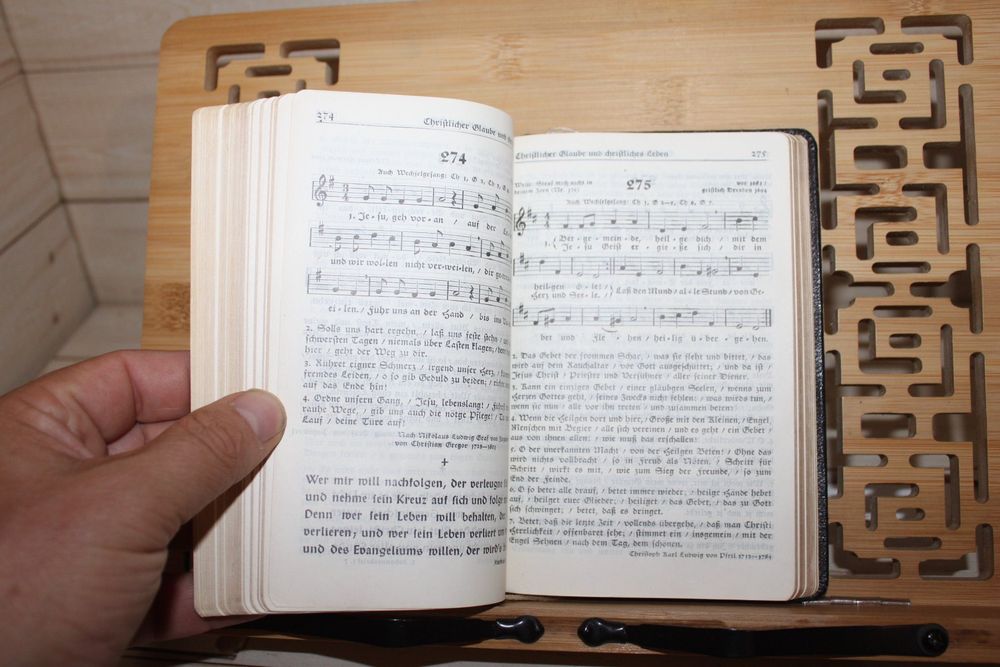 274
Christlicher Glaube und
274
Auch Wechselgesang: Ch 1, G 2, Ch 3, G
1. Je-su, geh vor-an / auf der
und wir wol-len nicht ver-wei-len, / dir
ei-len. / Führ uns an der Hand / bis ins
2. Solls uns hart ergehn, / laß uns feste stehn /
schwersten Tagen / niemals über Lasten klagen;
hier / geht der Weg zu dir.
3. Rühret eigner Schmerz / irgend unser Herz, /
fremdes Leiden, / o so gib Geduld zu beiden; /
auf das Ende hin!
4. Ordne unsern Gang, / Jesu, lebenslang! /
rauhe Wege, / gib uns auch die nötge Pflege!
Lauf / deine Türe auf!
Nach Nikolaus Ludwig Graf von
von Christian Gregor
+
Wer mir will nachfolgen, der verleugne
und nehme sein Kreuz auf sich und folge
Denn wer sein Leben will behalten, der
verlieren; und wer sein Leben verliert um
und des Evangeliums willen, der wird's
Christlicher Glaube und christliches Leben
275
Weise: Straf mich nicht in
deinem Zorn (Nr. 176)
275
vor 1681 /
geistlich Dresden 1694
Auch Wechselgesang: Ch 1, G 2–5, Ch 6, G 7
1. Bet-ge-mein-de, heil-ge dich / mit dem
Je-su Geist er-gie-ße sich / dir in
heil-gen Öle! /
Herz und See-le. / Laß den Mund / al-le Stund / von Ge-
bet und Fle-hen / hei-lig ü-ber-ge-hen.
2. Das Gebet der frommen Schar, / was sie fleht und bittet, / das
wird auf dem Rauchaltar / vor Gott ausgeschüttet; / und da ist /
Jesus Christ / Priester und Versühner / aller seiner Diener.
3. Kann ein einziges Gebet / einer gläubgen Seelen, / wenns zum
Herzen Gottes geht, / seines Zwecks nicht fehlen: / was wirds tun, /
wenn sie nun / alle vor ihn treten / und zusammen beten!
4. Wenn die Heilgen dort und hier, / Große mit den Kleinen, / Engel,
Menschen mit Begier / alle sich vereinen / und es geht / ein Gebet /
aus von ihnen allen: / wie muß das erschallen!
5. O der unerkannten Macht / von der Heilgen Beten! / Ohne das
wird nichts vollbracht / so in Freud als Nöten. / Schritt für
Schritt / wirkt es mit, / wie zum Sieg der Freunde, / so zum
End der Feinde.
6. O so betet alle drauf, / betet immer wieder, / heilge Hände hebet
auf, / heiliget eure Glieder, / heiliget / das Gebet, / das zu Gott
sich schwinget; / betet, daß es dringet.
7. Betet, daß die letzte Zeit / vollends übergehe, / daß man Christi
Herrlichkeit / offenbaret sehe; / stimmet ein / insgemein / mit der
Engel Sehnen / nach dem Tag, dem schönen.
Christoph Karl Ludwig von Pfeil 1712–1784